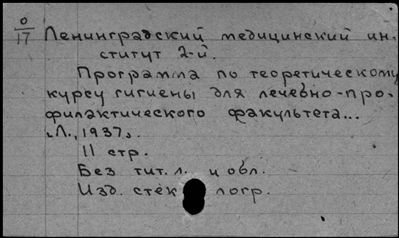 0
17
Ленинградский медицинский ин-
ститут 2-й.
Программа по теоретическому
курсу гигиены для лечебно-про-
филактического факультета...
Л., 1937.
11 стр.
Без тит. л. и обл.
Изд. стек логр.